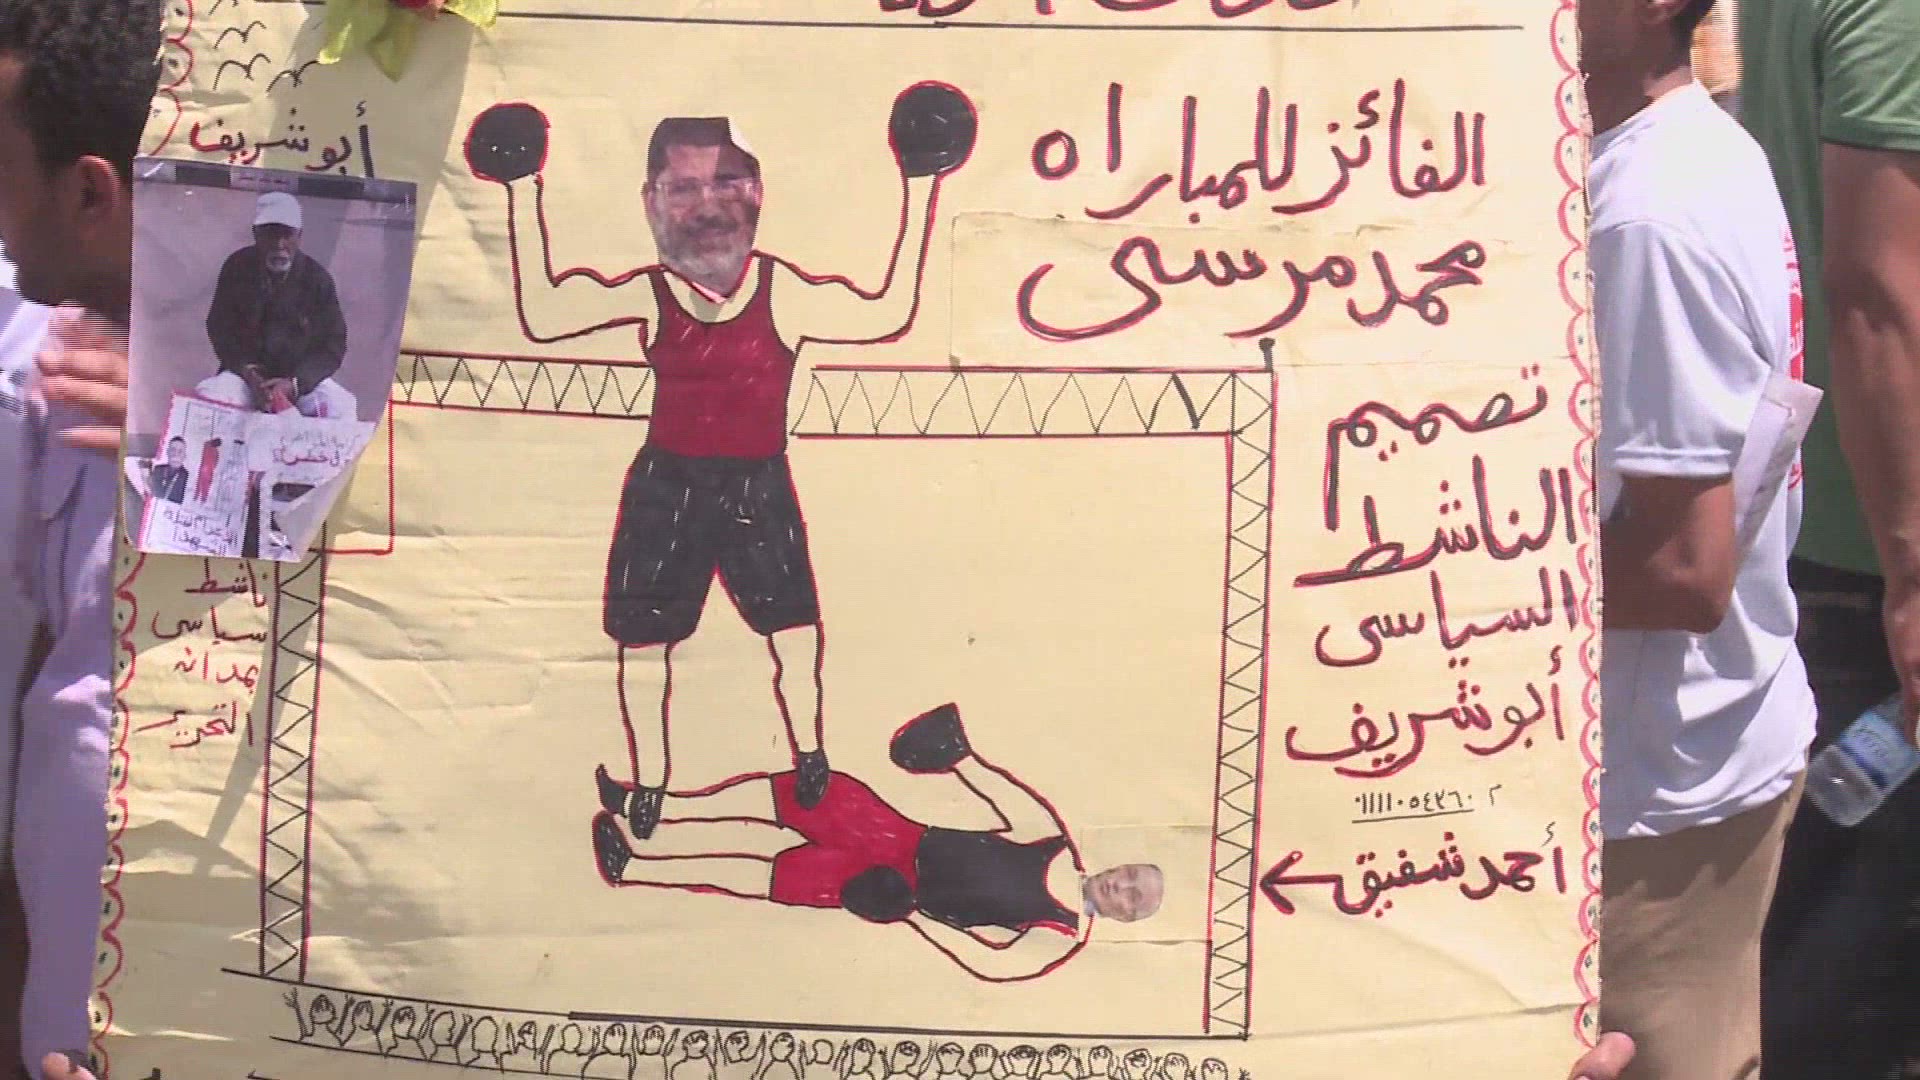 الفائز للمباراه
محمد مرسى
تصميم
الناشط
السياسى
أبو شريف
م ٠١١١١٠٥٤٢٦٠
أحمد شفيق
أبو شريف
ناشط
سياسى
بمدانه
التحرير